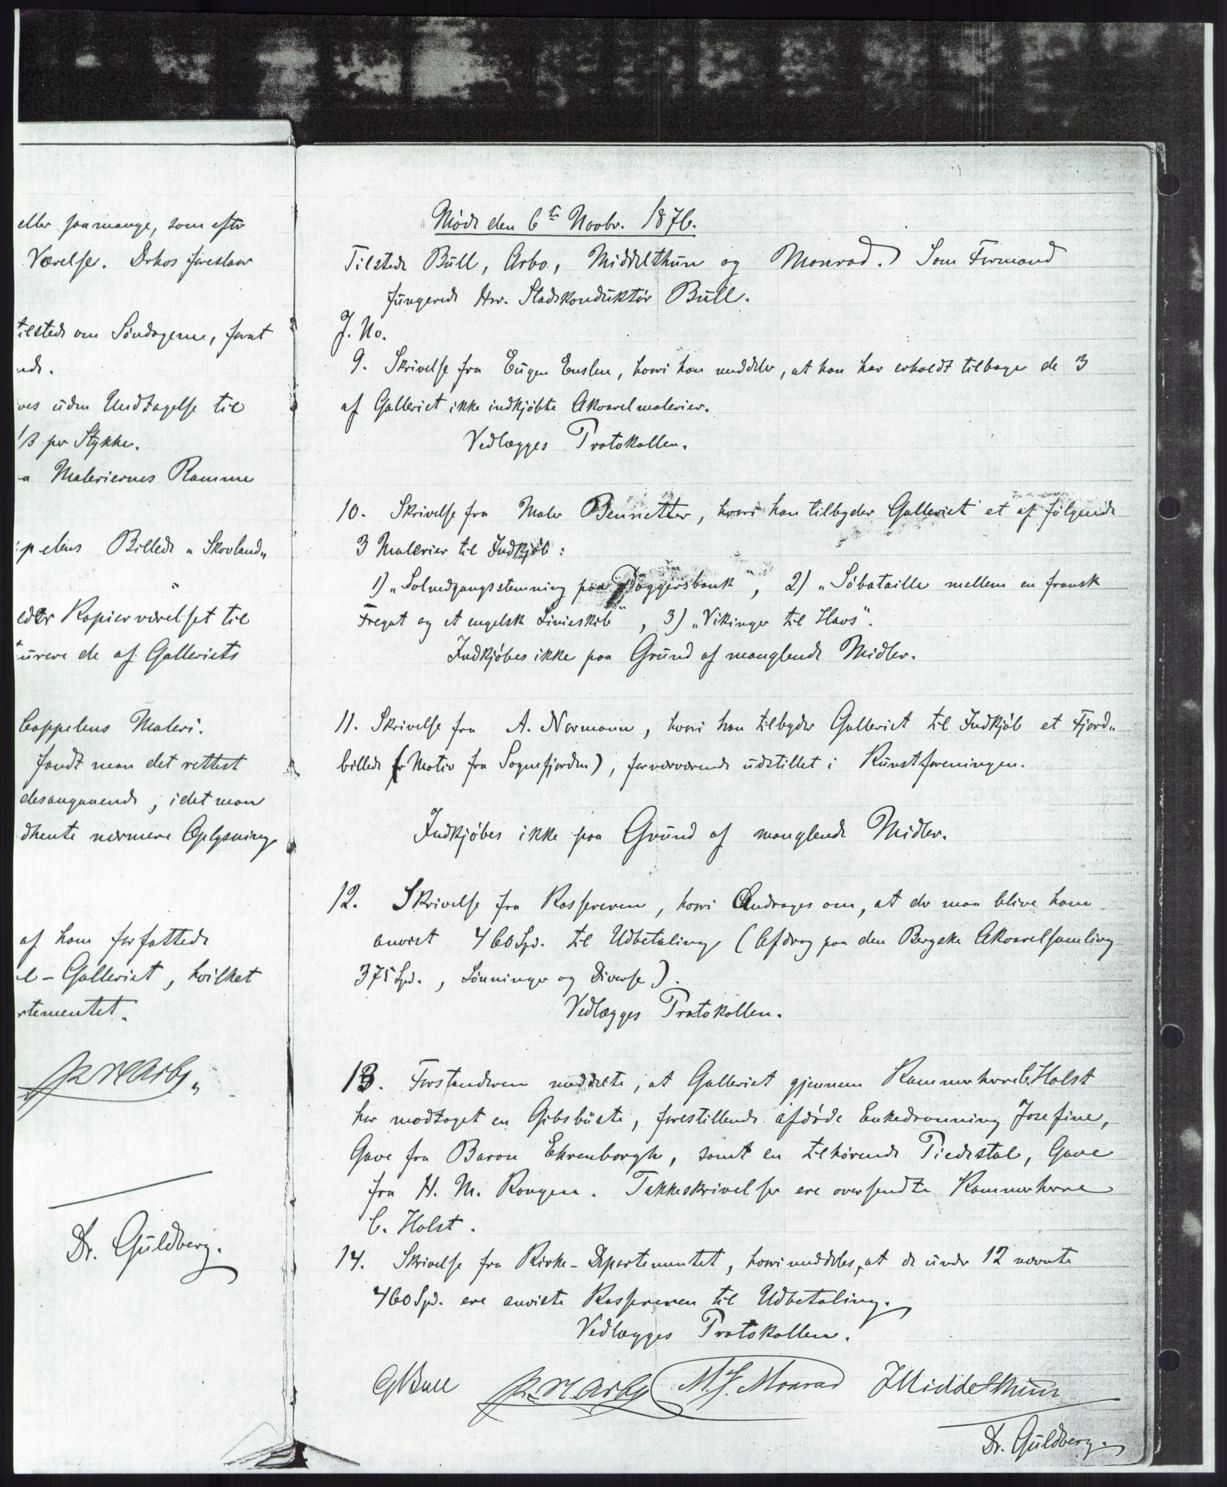 eller saa mange, som efter
Værelse. Dirkes foreslaar
tilstede om Søndagene, forat
nde.
ves uden Undtagelse til
1ß per Stykke.
a Maleriernes Ramme
ppelens Billede "Skovland"
eder Kopierværelset til
urere de af Galleriets
Cappelens Maleri.
fandt man det rettest
desangaaende, idet man
dhente nærmere Oplysning
af ham forfattede
l-Galleriet, hvilket
rtementet.
P. N. Arbo
Dr. Guldberg.
Møde den 6te Novbr. 1876.
Tilstede Bull, Arbo, Middelthun og Monrad. Som Formand
fungerede Hrr. Stadskonduktør Bull.
J. No.
9. Skrivelse fra Eugen Enslen, hvori han meddeler, at han har erholdt tilbage de 3
af Galleriet ikke indkjøbte Akvarelmalerier.
Vedlægges Protokollen.
10. Skrivelse fra Maler Bennetter, hvori han tilbyder Galleriet et af følgende
3 Malerier til Indkjøb:
1) "Solnedgangsstemning paa Doggersbank", 2) "Søbataille mellem en fransk
Fregat og et engelsk Linieskib", 3) "Vikinger til Havs".
Indkjøbes ikke paa Grund af manglende Midler.
11. Skrivelse fra A. Normann, hvori han tilbyder Galleriet til Indkjøb et Fjord-
billede (Motiv fra Sognefjorden), forværende udstillet i Kunstforeningen.
Indkjøbes ikke paa Grund af manglende Midler.
12. Skrivelse fra Kassereren, hvori Andrages om, at der maa blive ham
anvist 460 Spd. til Udbetaling (Afdrag paa den Bergske Akvarelsamling
375 Spd., Lønninger og Diverse).
Vedlægges Protokollen.
13. Forstanderen meddelte, at Galleriet gjennem Kammerherre C. Holst
har modtaget en Gibsbüste, forestillende afdøde Enkedronning Josefine,
Gave fra Baron Ehrenborgh, samt en tilhørende Piedestal, Gave
fra H. M. Kongen. Takkeskrivelser ere oversendte Kammerherre
C. Holst.
14. Skrivelse fra Kirke-Departementet, hvori meddeles, at de under 12 nævnte
460 Spd. ere anviste Kassereren til Udbetaling.
Vedlægges Protokollen.
G Bull P. N. Arbo M. J. Monrad J Middelthun
Dr. Guldberg.